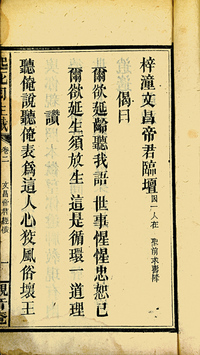 梓潼文昌帝君臨壇 因一人在聖前求壽降
偈曰
爾欲延齡聽我語 世事惺惺忠恕已
爾欲延生須放生 這是循環一道理
讚
聽俺說聽俺表爲這人心狡風俗壞王
卷二
文昌帝君經懺
一
觀音菴